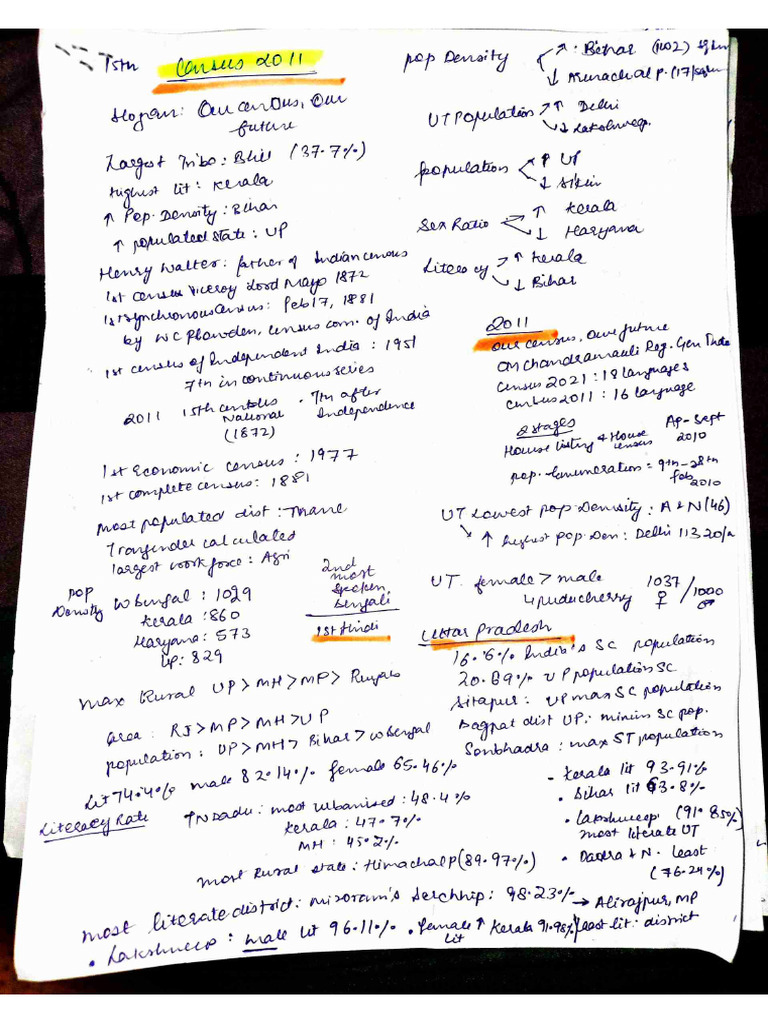 15th Census 2011
Slogan: Our census, Our
future
Largest Tribe: Bhil (37.7%)
Highest lit: Kerala
↑ Pop. Density: Bihar
↑ populated state: UP
Henry Walter: father of Indian census
1st census Viceroy Lord Mayo 1872
1st synchronous census: Feb 17, 1881
by WC Plowden, census com. of India
1st census of Independent India: 1951
7th in continuous series
2011 15th census National (1872) · 7th after Independence
1st Economic census: 1977
1st complete census: 1881
most populated dist: Thane
Transgender calculated
largest work force: Agri
pop Density W Bengal: 1029
Kerala: 860
Haryana: 573
UP: 829
2nd
most
spoken
Bengali
1st Hindi
max Rural UP > MH > MP > Punjab
area: RJ > MP > MH > UP
population: UP > MH > Bihar > W Bengal
Lit 74.4% male 82.14% female 65.46%
Literacy Rate
↑ TN Dadu: most urbanised: 48.4%
Kerala: 47.7%
MH: 45.2%
most Rural state: Himachal P (89.97%)
most literate district: mizoram's Serchhip: 98.23%
• Lakshweep: male lit 96.11% • female ↑ Kerala 91.98%
lit
pop Density ↑: Bihar (1102) sqkm
↓ Arunachal p. (17/sqkm)
UT Population ↑ Delhi
↓ Lakshweep.
population ↑ UP
↓ Sikkim
Sex Ratio ↑ Kerala
↓ Haryana
Literacy ↑ Kerala
↓ Bihar
2011
our census, our future
CM Chandramauli Reg. Gen
Census 2021: 18 languages
Census 2011: 16 language
2 stages
House listing & House census Ap-Sept 2010
pop. Enumeration = 9th-28th Feb 2010
UT Lowest pop. Density: A & N (46)
↑ highest pop. Den: Delhi 11320/
UT female > male
↳ puducherry 1037 ♀ / 1000 ♂
Uttar Pradesh
16.6% India's SC population
20.69% UP population SC
Sitapur: UP max SC population
Bagpat dist UP: minim SC pop.
Sonbhadra: max ST population
- Kerala lit 93.91%
• Bihar lit 63.8%
• Lakshweep (91.85%)
most literate UT
• Dadra & N. least
(76.24%)
→ Alirajpur, MP
least lit: district